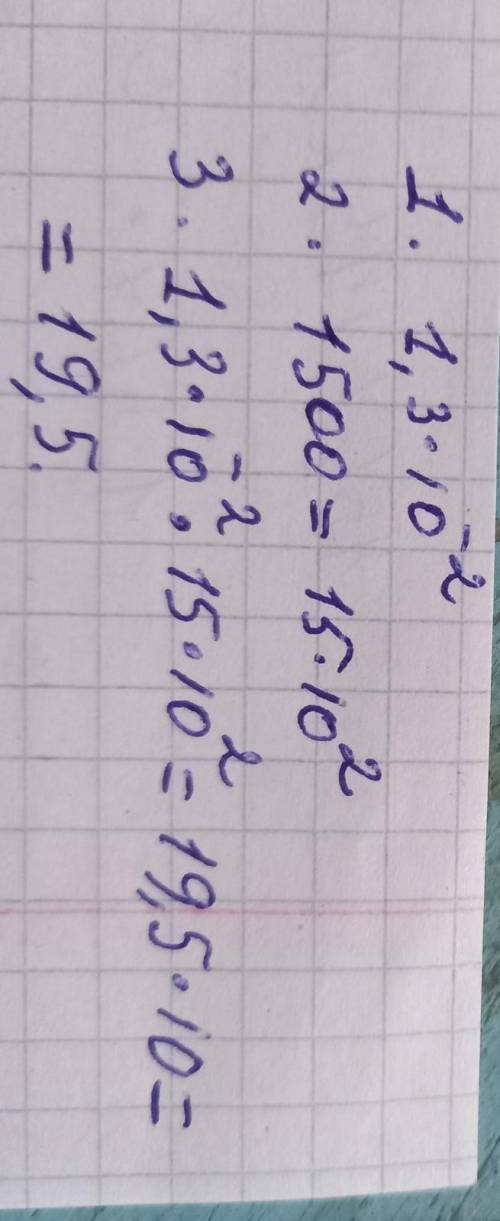 1. 1,3·10⁻²
2. 1500 = 15·10²
3. 1,3·10⁻²·15·10² = 19,5·10 =
= 19,5.